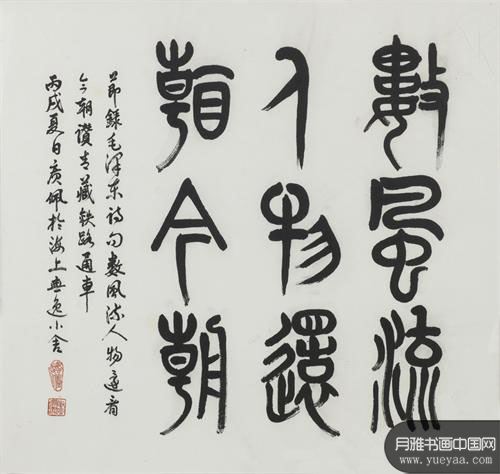 數風流
人物還
看今朝
節錄毛澤东诗句數風流人物還看
今朝讚青藏铁路通車
丙戌夏日廣佩於海上典逸小舍
月雅书画中国网
www.yueyaa.com